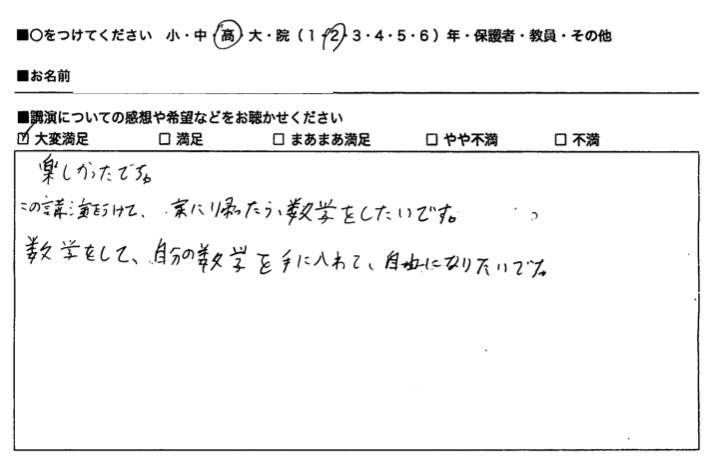 ■○をつけてください 小・中・高・大・院（1・2・3・4・5・6）年・保護者・教員・その他
■お名前
■講演についての感想や希望などをお聴かせください
☑ 大変満足 □ 満足 □ まあまあ満足 □ やや不満 □ 不満
楽しかったです。
この講演をうけて、家に帰ったら、数学をしたいです。
数学をして、自分の数学を手に入れて、自由になりたいです。